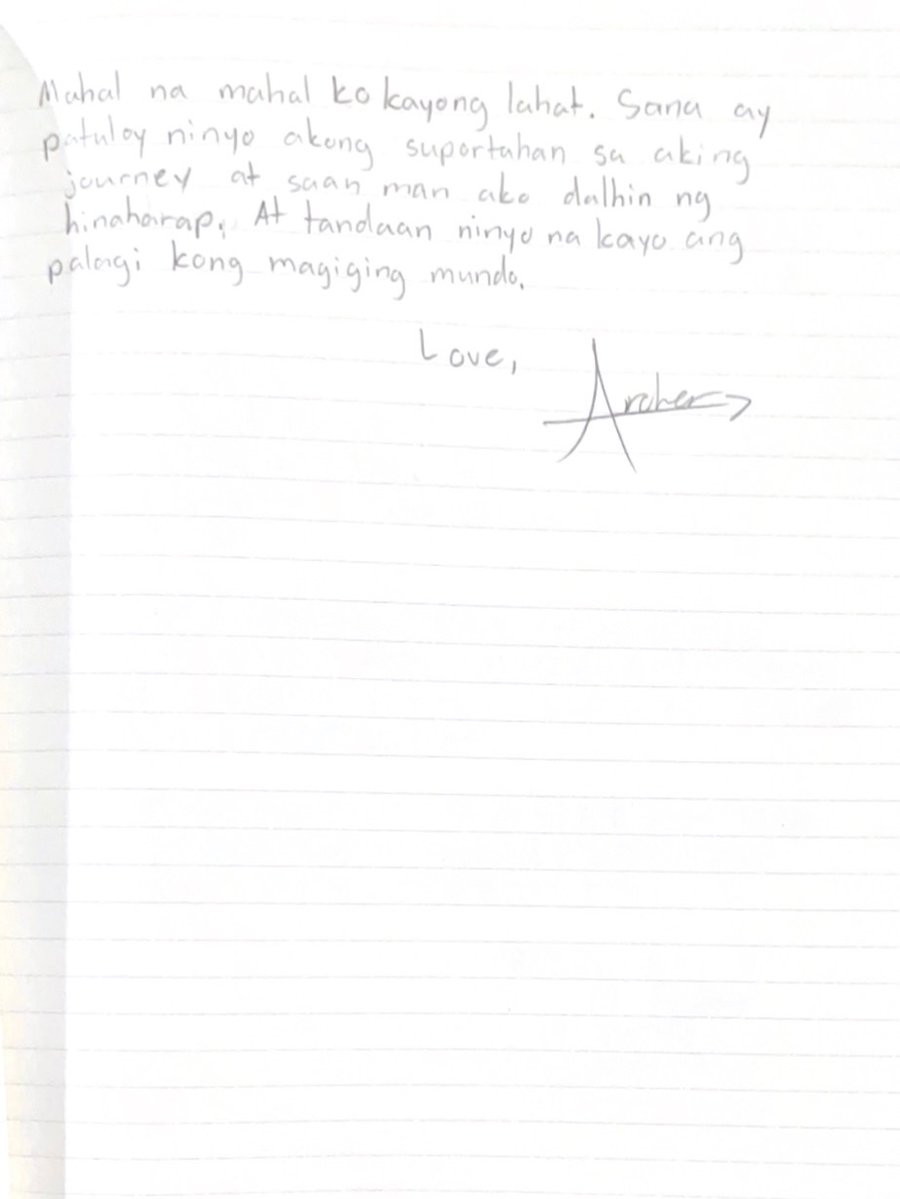 Mahal na mahal ko kayong lahat. Sana ay
patuloy ninyo akong suportahan sa aking
journey at saan man ako dalhin ng
hinaharap. At tandaan ninyo na kayo ang
palagi kong magiging mundo.
Love,
Archer